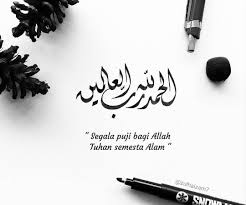 الحمد لله رب العالمين
" Segala puji bagi Allah
Tuhan semesta Alam "
SNOWMAN